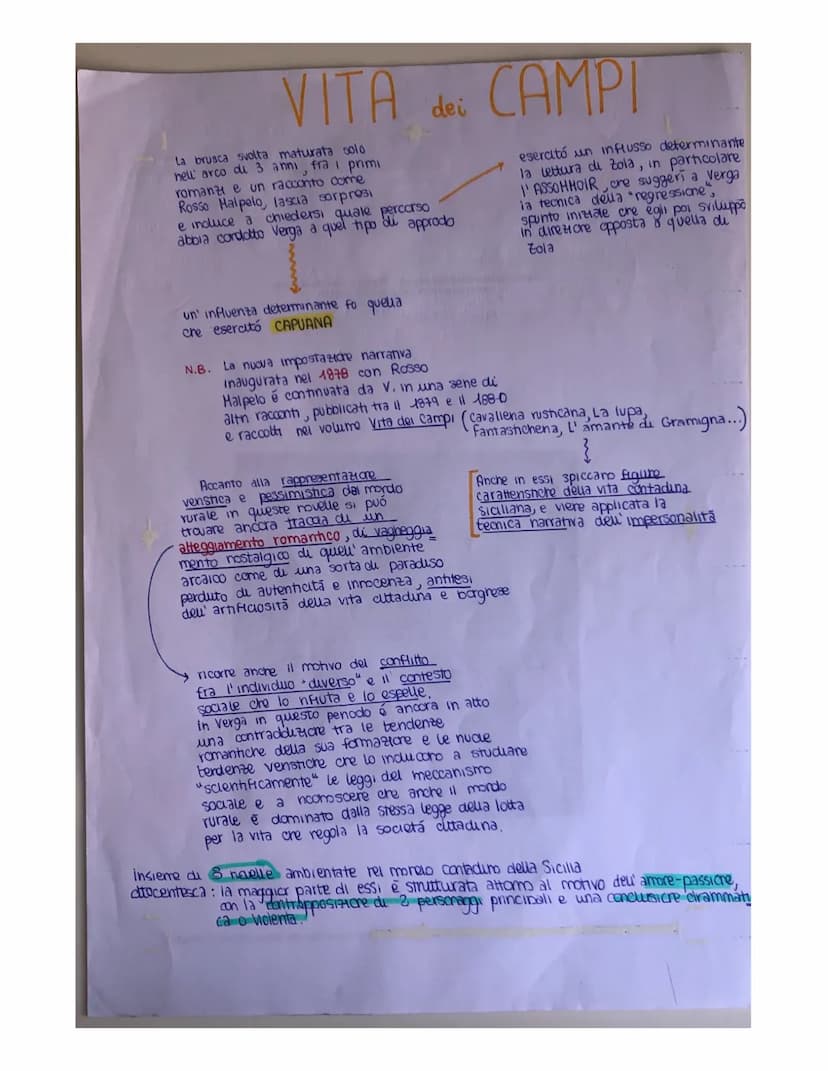 VITA dei CAMPI
La brusca svolta maturata solo
nell'arco di 3 anni, fra i primi
romanzi e un racconto come
Rosso Malpelo, lascia sorpresi
e induce a chiedersi quale percorso
abbia condotto Verga a quel tipo di approdo
esercitó un influsso determinante
la lettura di Zola, in particolare
l'ASSOMMOIR, che suggerì a Verga
la tecnica della "regressione",
spunto iniziale che egli poi sviluppò
in direzione opposta a quella di
Zola
un'influenza determinante fo quella
che esercitó CAPUANA
N.B. La nuova impostazione narrativa
inaugurata nel 1878 con Rosso
Malpelo é continuata da V. in una serie di
altri racconti, pubblicati tra il 1879 e il 1880
e raccolti nel volume Vita dei Campi (Cavalleria rusticana, La lupa,
Fantasticheria, L'amante di Gramigna...)
Accanto alla rappresentazione
veristica e pessimistica del mondo
rurale in queste novelle si puó
trovare ancora traccia di un
atteggiamento romantico, di vagheggia
mento nostalgico di quell'ambiente
arcaico come di una sorta di paradiso
perduto di autenticità e innocenza, antitesi
dell'artificiosità della vita cittadina e borghese
Anche in essi spiccano figure
caratteristiche della vita contadina
siciliana, e viene applicata la
tecnica narrativa dell'impersonalità
ricorre anche il motivo del conflitto
fra l'individuo "diverso" e il contesto
sociale che lo rifiuta e lo espelle.
In Verga in questo periodo é ancora in atto
una contraddizione tra le tendenze
romantiche della sua formazione e le nuove
tendenze veristiche che lo inducono a studiare
"scientificamente" le leggi del meccanismo
sociale e a riconoscere che anche il mondo
rurale é dominato dalla stessa legge della lotta
per la vita che regola la societá cittadina.
Insieme di 8 novelle ambientate nel mondo contadino della Sicilia
ottocentesca: la maggior parte di essi é strutturata attorno al motivo dell'amore-passione,
con la contrapposizione di 2 personaggi principali e una conclusione drammati
ca o violenta.